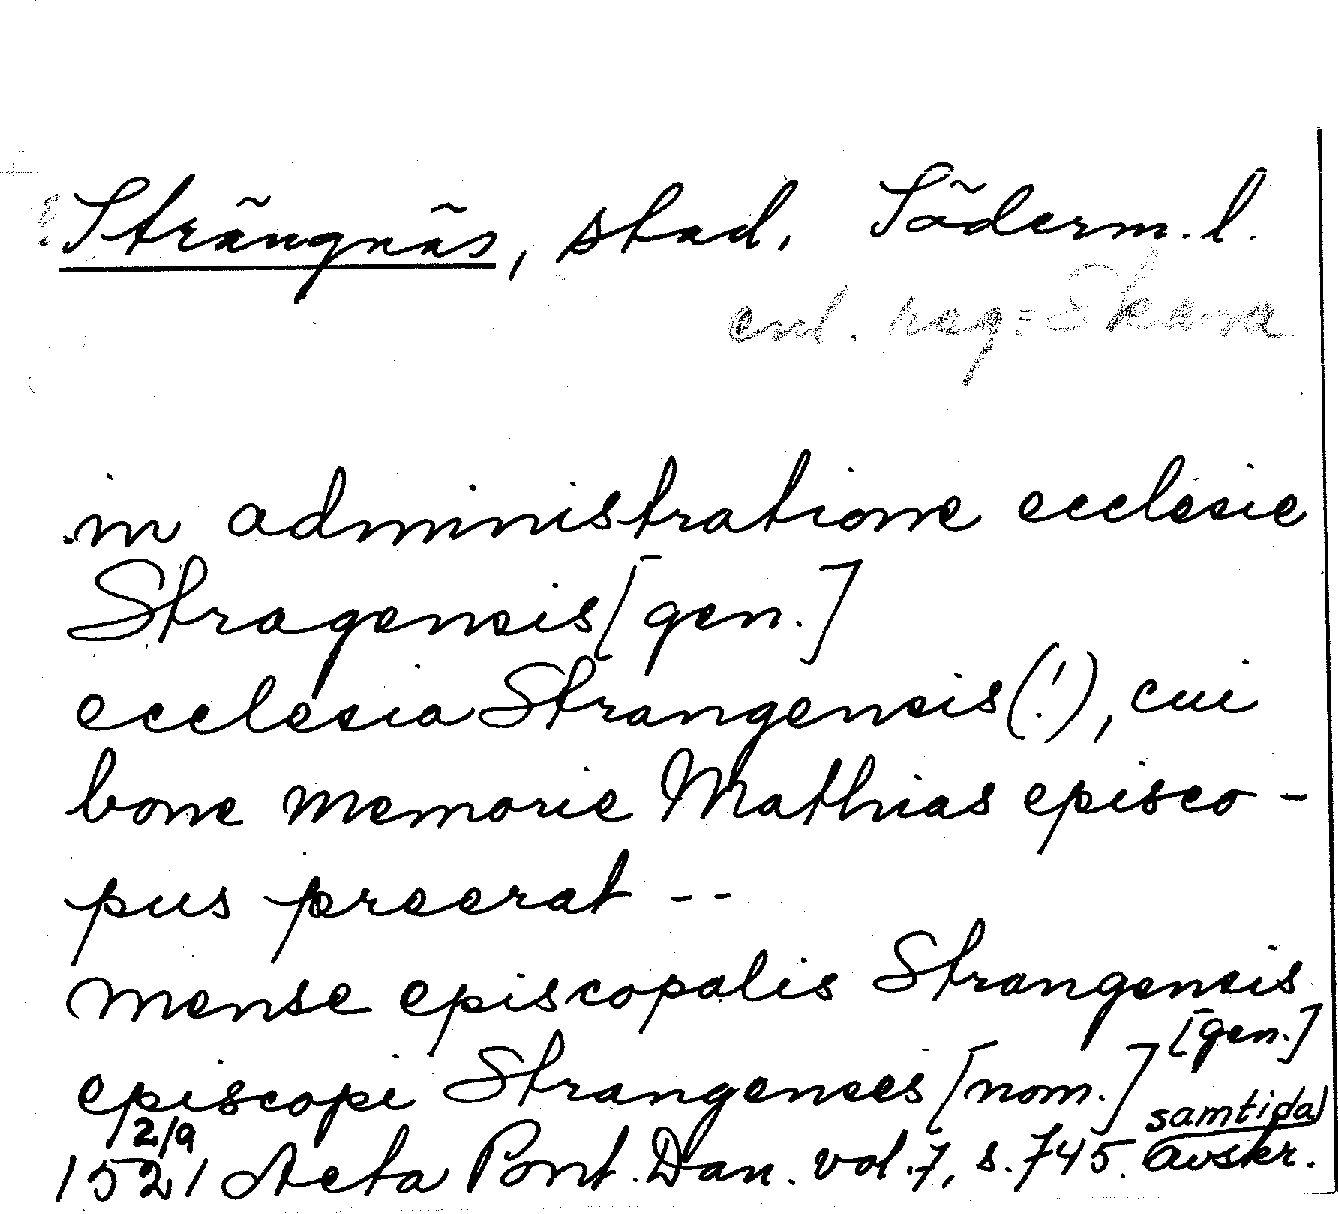 Strängnäs, stad, Söderm. l.
enl. reg: Skara
in administratione ecclesie
Stragensis [gen.]
ecclesia Strangensis (!), cui
bone memorie Mathias episco-
pus preerat --
mense episcopalis Strangensis
[gen.]
episcopi Strangenses [nom.]
2/9
1521 Acta Pont. Dan. vol. 7, s. 745. samtida avskr.